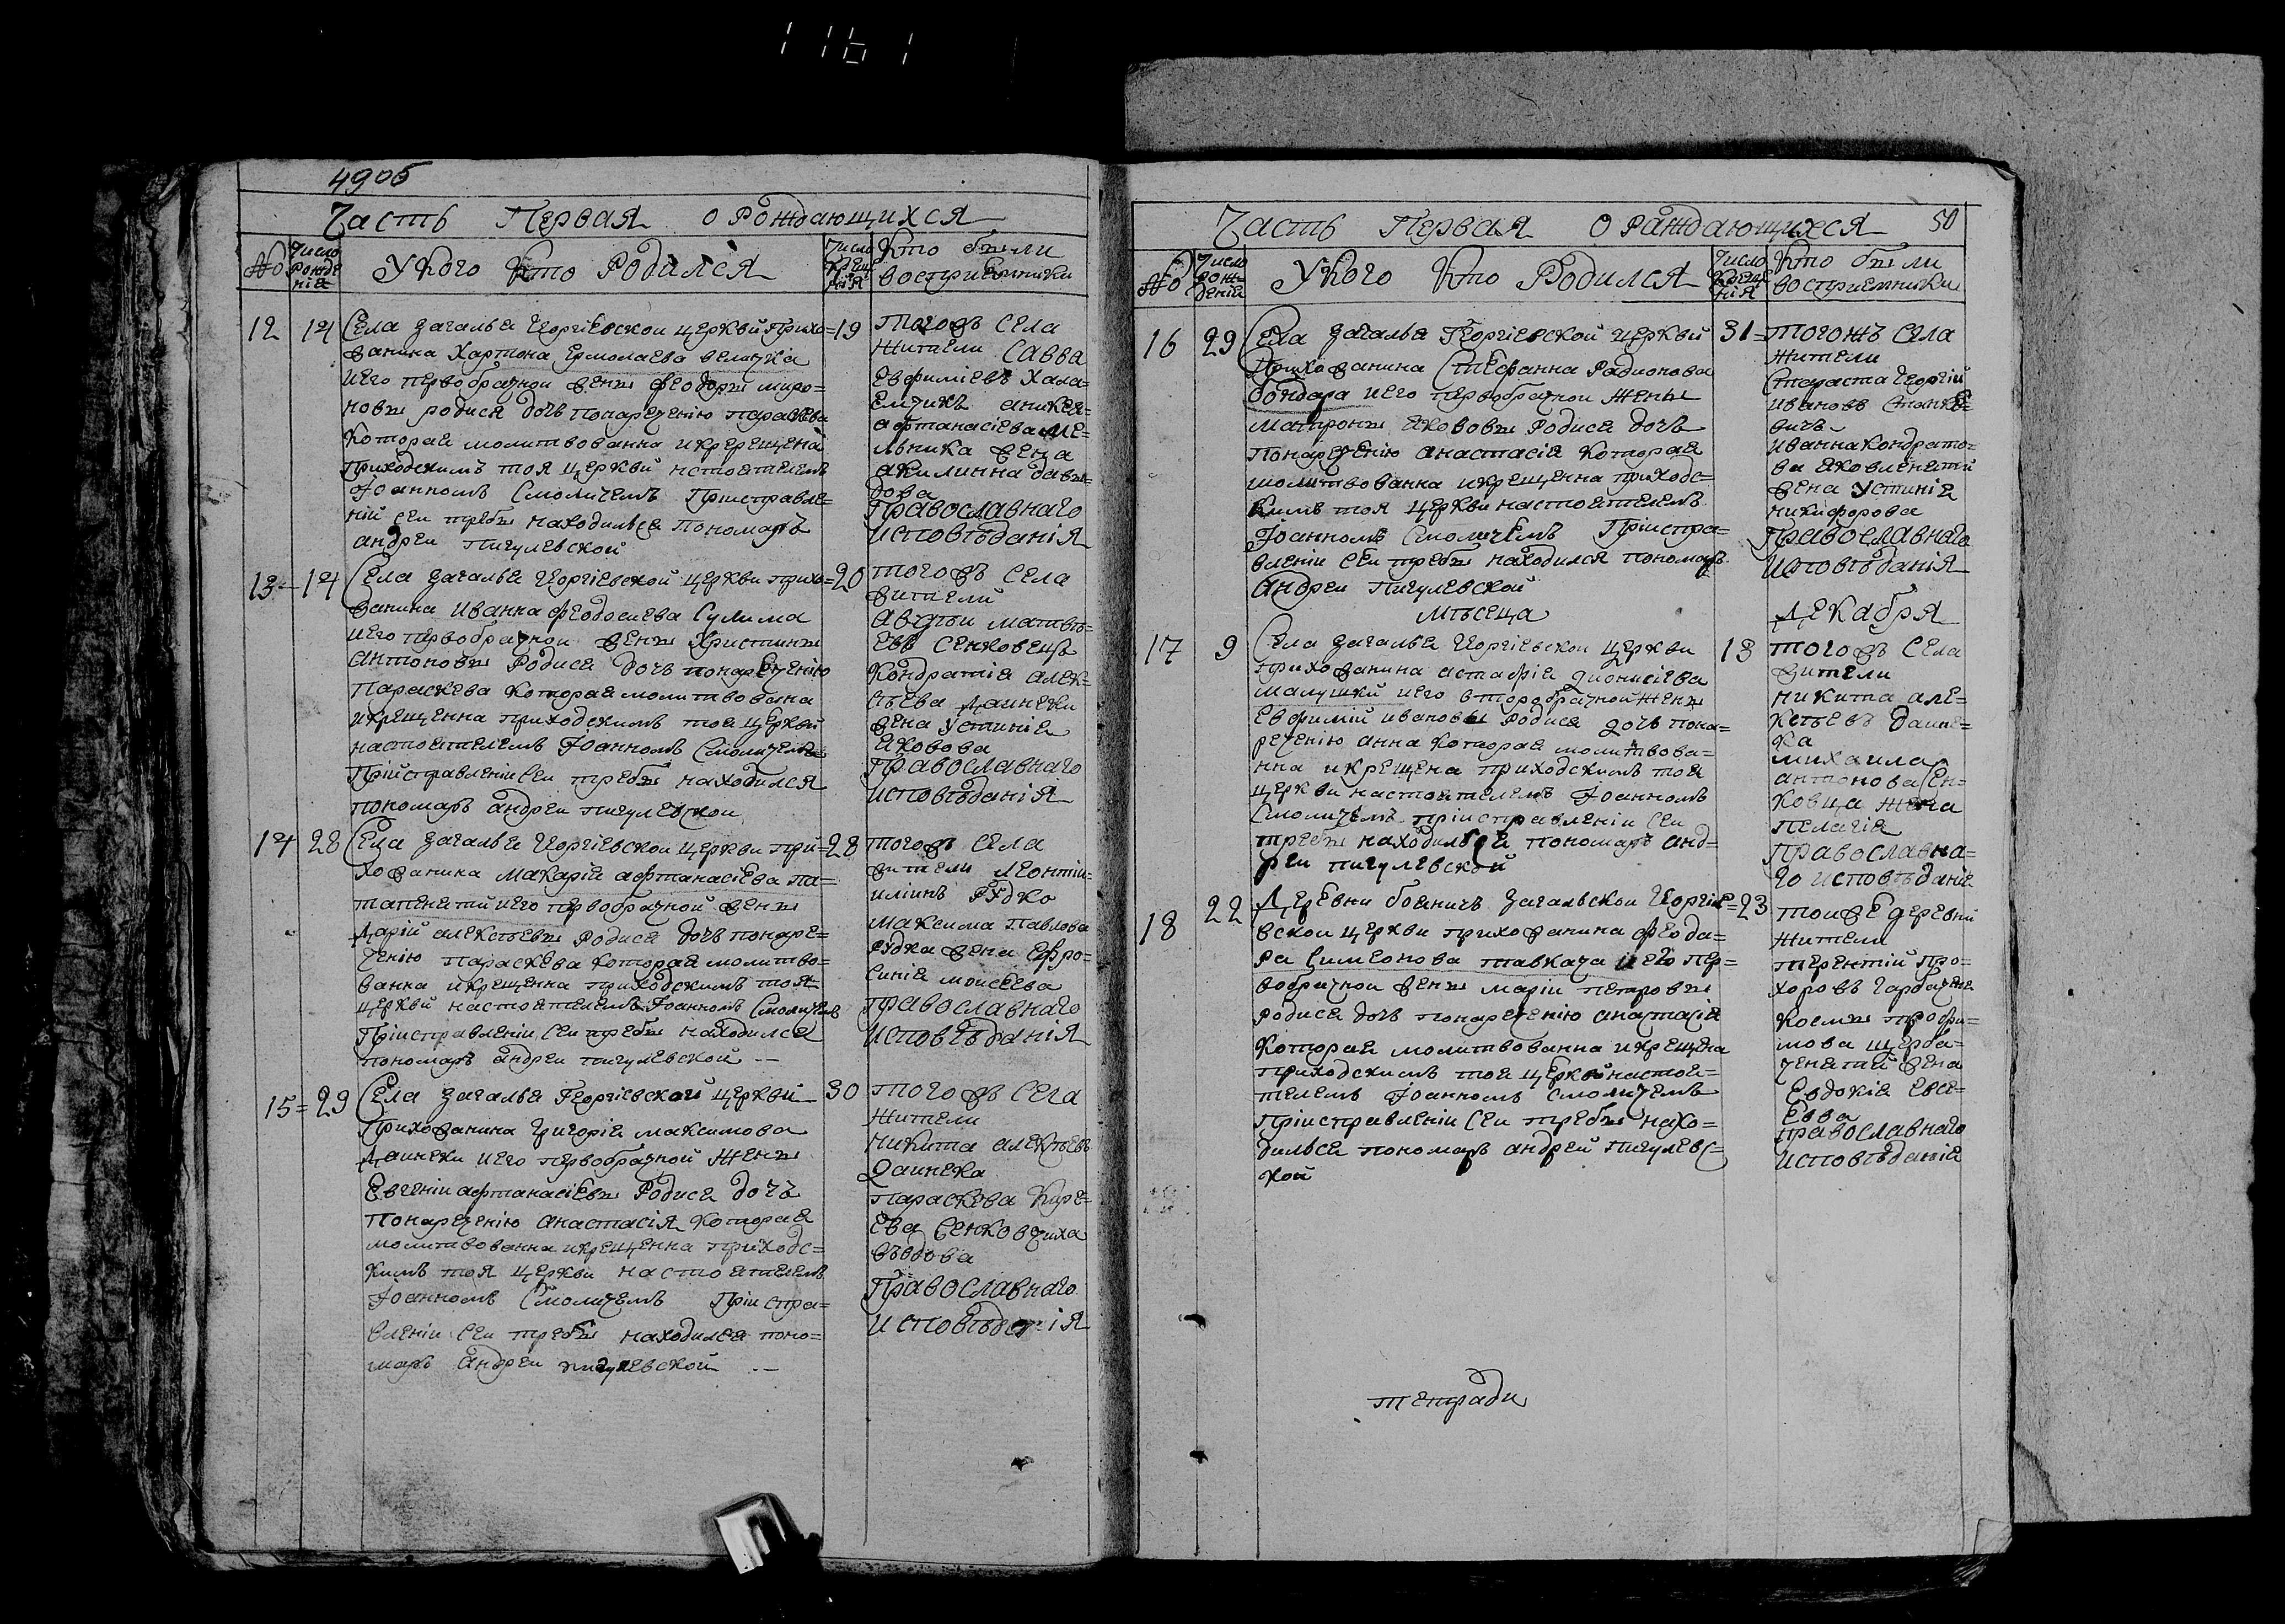 1161
49об
Часть Первая о Рождающихся
№
Число рожденія
У Кого Кто Родился
Число крещенія
Кто были восприемники
12
14
Села Загалья Георгіевскои церквй Прихо=
жанина Харитона Ермолаева
иего первобрачнои жены Феодоры миро=
новы родися дочь понаречению параскева
Которая молитвованна икререщена
Приходскимъ тоя церквй настоятелемъ
Іоанномъ Смоличемъ Пріисправле=
ніи сеи требы находилься Пономарь
андреи Пигулевской
19
тогожъ Села
Жители Савва
Евфиміевъ Хала=
афтанасіева ме=
льника жена
акилинна давы=
дова
Православнаго
исповѣданія
13
14
Села Загалья Георгіевской церкви прихо=
жанина Иванна Феодосиева Сулима
иего первобрачнои жены Христины
антоновы Родися дочь понаречению
Параскева Которая молитвованна
икрещенна приходскимъ тоя церквй
настоятелемъ Іоанномъ Смоличемъ
Пріисправленіи сеи требы находился
пономарь андреи пигулевскои
20
тогожъ Села
жители
матвѣ=
евъ Сенковецъ
Кондратія алек=
сѣева Даинеки
жена Устинія
Яковова
Православнаго
исповѣданія
14
28
Села Загалья Георгіевскои церкви при=
хожанина Макарія афтанасіева па=
иего первобрачной жены
Дарій алексѣевы Родися дочь понаре=
чению параскева Которая молитво=
ванна икрещенна приходскимъ тоя
церквй настоятелемъ Іоанномъ Смоличемъ
Пріисправленіи сеи требы находился
пономарь андреи пигулевской
28
тогожъ Села
жители Леонтіи
иліинъ Рудко
Максима Павлова
Рудка жена Ефро=
синія моисеева
Православнаго
исповѣданія
15
29
Села Загалья Георгіевской церквй
Прихожанина Григорія максимова
Даинеки иего первобрачной Жены
Евгеніи афтанасіевы Родися дочь
Понаречению анастасія Которая
молитвованна икрещенна приходс=
кимъ тоя церкви настоятелемъ
Іоанномъ Смоличемъ Пріиспра=
вленіи сеи требы находился поно=
марь андреи пигулевской
30
тогожъ Села
Жители
Никита алексѣевъ
Даинека
Параскева Кире=
ева Сенковчиха
въдова
Православнаго
исповѣданія
50
Часть Первая о Раждающихся
№
Число рожденія
У Кого Кто Родился
Число крещенія
Кто были восприемники
16
29
Села Загалья Георгіевской церквй
Прихожанина Стефанна Радионова
бондара иего первобрачной Жены
Матроны Яковови Родися дочь
Понаречению анастасія Которая
молитвованна икрещенна приходс=
кимъ тоя церкви настоятелемъ
Іоанномъ Смоличемъ Пріиспра=
вленіи сеи требы находился пономарь
андреи Пигулевской
31
тогожъ Села
Жители
Староста Георгій
Ивановъ Станке=
вичъ
Иванна Кондрато=
ва
жена Устинія
никифорова
Православнаго
исповѣданія
Мѣсеца Декабря
17
9
Села Загалья Георгіевскои церкви
прихожанина астафія дионисіева
иего второбрачной Жены
Евфиміи ивановы Родися дочь пона=
речению анна Которая молитвова=
нна икрещена приходскимъ тоя
церкви настоятелемъ Іоанномъ
Смоличемъ пріисправленіи сеи
требы находилься пономарь анд=
реи пигулевской
13
тогожъ Села
жители
никита але=
ксѣевъ даине=
ка
михаила
антонова Сен=
ковца жена
Пелагія
Православна=
го исповѣданія
18
22
Деревни бояничъ Загальскои Георгіе=
вскои церкви прихожанина Феодо=
ра Симеонова иего пер=
вобрачнои жены маріи петровы
родися дочь понаречению анастасія
Которая молитвованна икрещена
приходскимъ тоя церкви настоя=
телемъ Іоанномъ Смоличемъ
Пріисправленіи Сеи требы нахо=
дилься пономарь андрей пигулевс=
кой
23
тоиже деревни
Жители
терентій Про=
хоровъ
Космы трофи=
мова
жена
Евдокія Евсе=
ева
Православнаго
исповѣданія
тетради